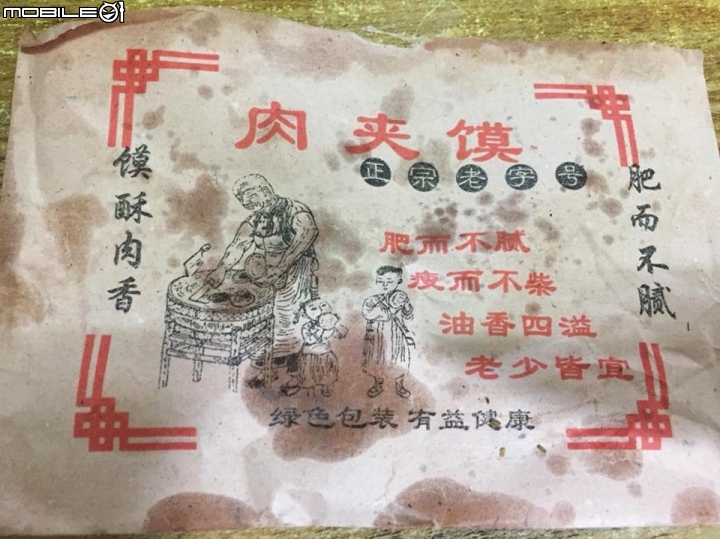 MOBILE01
肉夹馍
正宗老字号
馍酥肉香
肥而不腻
肥而不腻
瘦而不柴
油香四溢
老少皆宜
绿色包装 有益健康